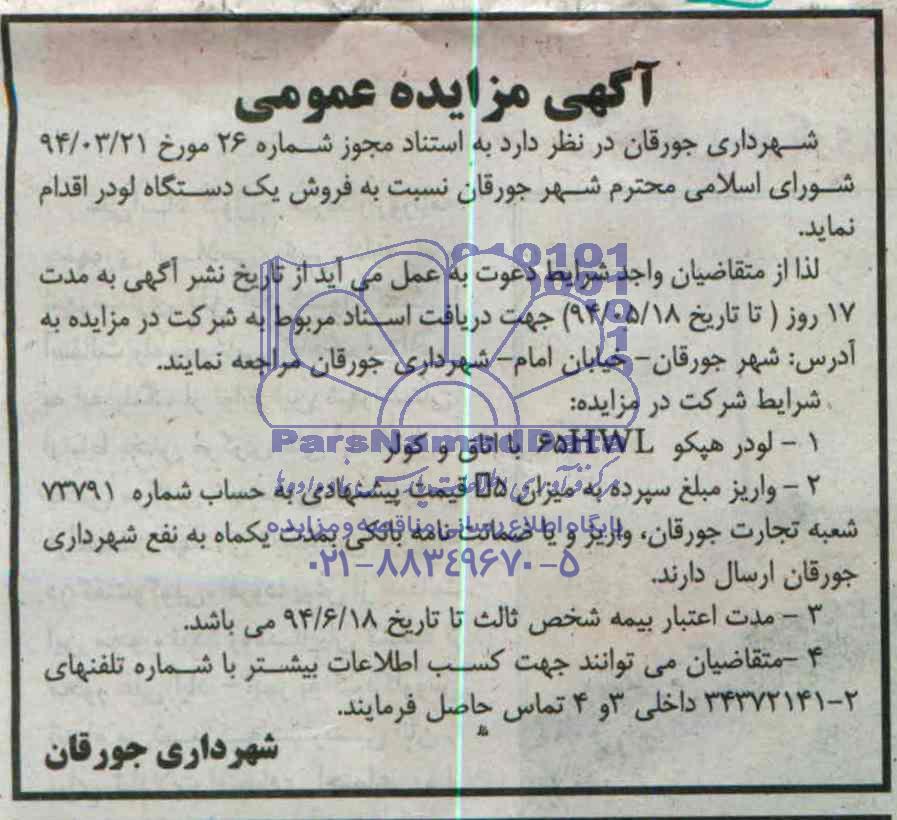 آگهی مزایده عمومی
شهرداری جورقان در نظر دارد به استناد مجوز شماره ۲۶ مورخ ۹۴/۰۳/۲۱
شورای اسلامی محترم شهر جورقان نسبت به فروش یک دستگاه لودر اقدام
نماید.
لذا از متقاضیان واجد شرایط دعوت به عمل می آید از تاریخ نشر آگهی به مدت
۱۷ روز ( تا تاریخ ۹۴/۰۵/۱۸) جهت دریافت اسناد مربوط به شرکت در مزایده به
آدرس: شهر جورقان- خیابان امام- شهرداری جورقان مراجعه نمایند.
شرایط شرکت در مزایده:
۱ - لودر هپکو ۶۵HWL با اتاق و کولر
۲ - واریز مبلغ سپرده به میزان ۵ قیمت پیشنهادی به حساب شماره ۷۳۷۹۱
شعبه تجارت جورقان، واریز و یا ضمانت نامه بانکی بمدت یکماه به نفع شهرداری
جورقان ارسال دارند.
۳ - مدت اعتبار بیمه شخص ثالث تا تاریخ ۹۴/۶/۱۸ می باشد.
۴ -متقاضیان می توانند جهت کسب اطلاعات بیشتر با شماره تلفنهای
۳۴۳۷۲۱۴۱-۲ داخلی ۳و ۴ تماس حاصل فرمایند.
شهرداری جورقان
ParsNamadData
پایگاه اطلاع رسانی مناقصه و مزایده
۰۲۱-۸۸۳۴۹۶۷۰-۵